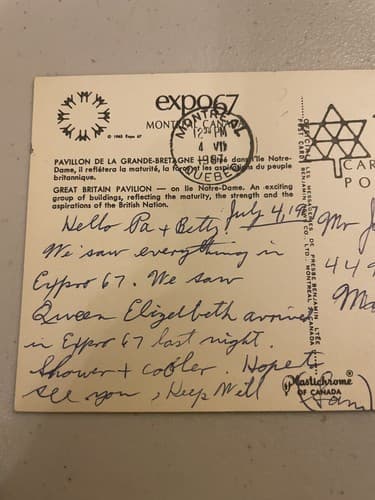 expo67
MONTREAL, CANADA
© 1963 Expo 67
MONTREAL
PM
4 VII
1967
QUEBEC
PAVILLON DE LA GRANDE-BRETAGNE — situé dans l'île Notre-
Dame, il reflétera la maturité, la force et les aspirations du peuple
britannique.
GREAT BRITAIN PAVILION — on Ile Notre-Dame. An exciting
group of buildings, reflecting the maturity, the strength and the
aspirations of the British Nation.
July 4, 19
Hello Pa + Betty
We saw everything in
Expo 67. We saw
Queen Elizelbeth arrive
in Expo 67 last night.
Shower + cooler. Hope t
see you, Keep Well
(Sam)
LES MESSAGERIES DE PRESSE BENJAMIN LTÉE
POST CARD BENJAMIN NEWS CO., LTD., MONTREAL, CANADA
Plastichrome
OF CANADA
CAR
PO
Mr J
449